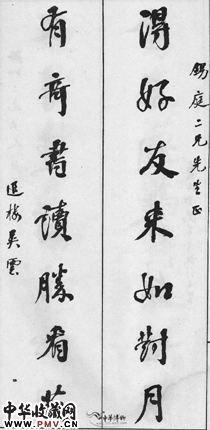 锡庭二兄先生正
得好友来如對月
有奇書讀勝看花
退樓吳雲
中華博物
中华收藏网
www.PMV.cn